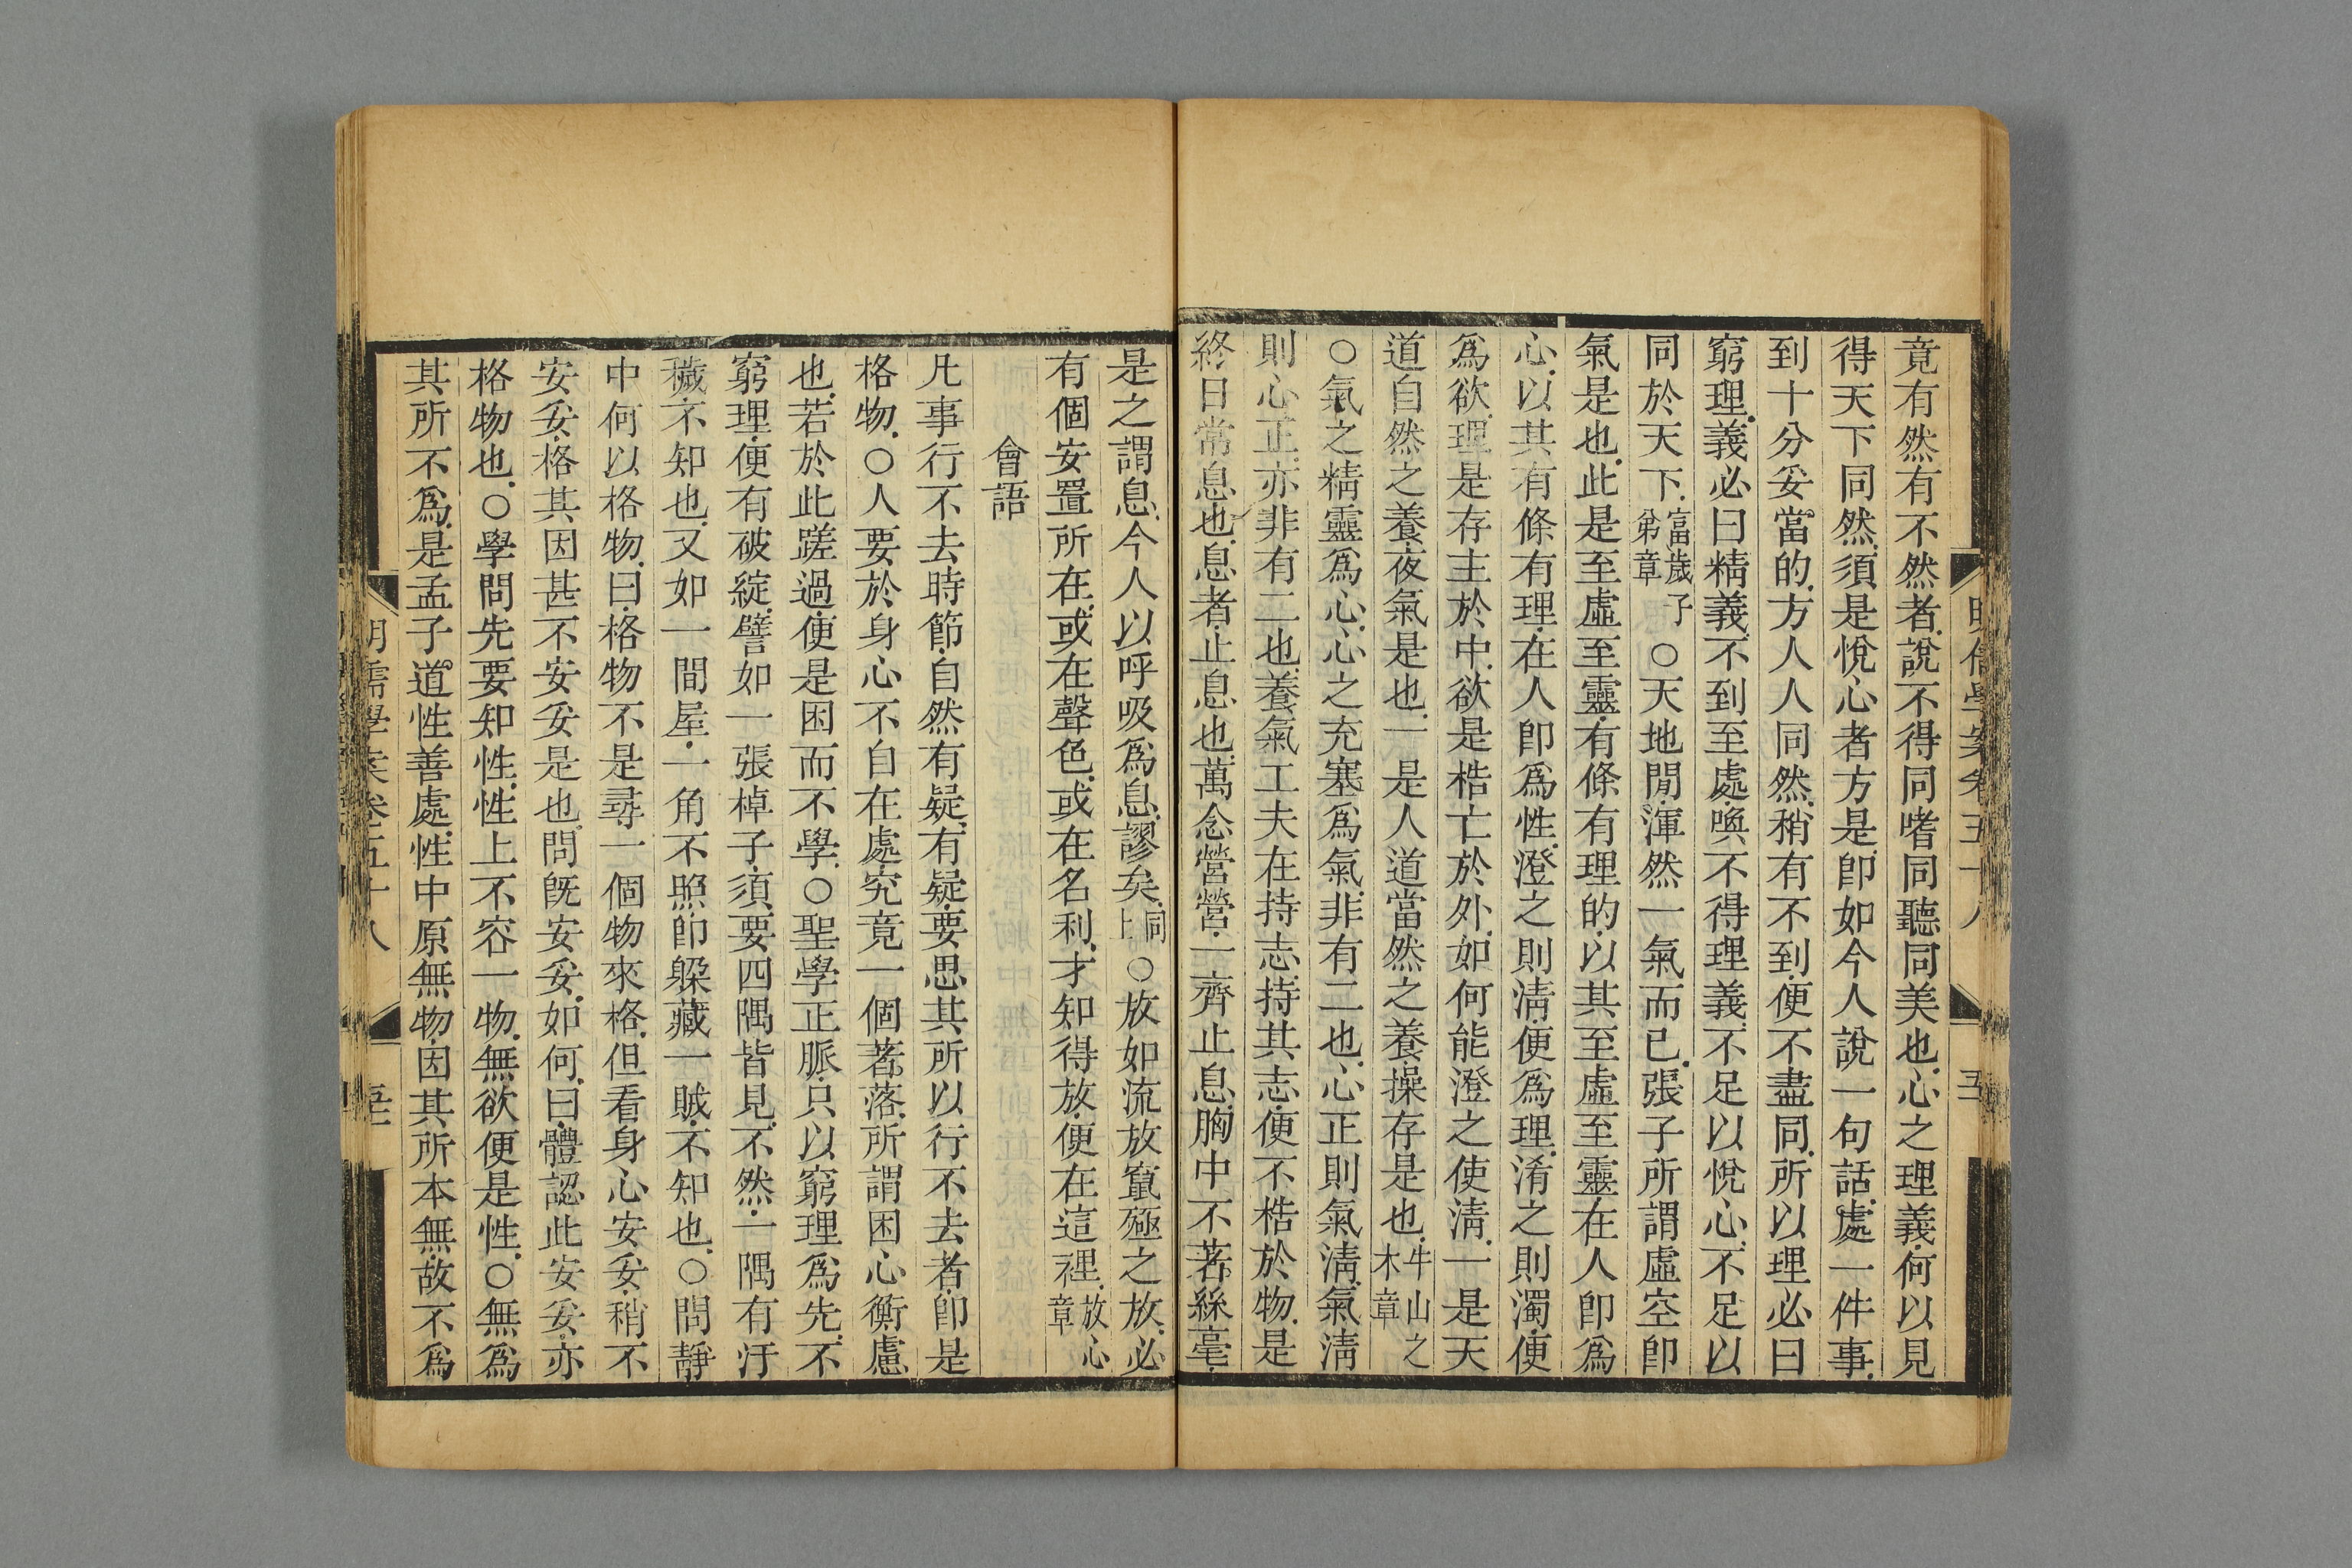 明儒學案卷五十八
五
竟有然有不然者說不得同嗜同聽同美也心之理義何以見
得天下同然須是悅心者方是卽如今人說一句話處一件事
到十分妥當的方人人同然稍有不到便不盡同所以理必曰
窮理義必曰精義不到至處喚不得理義不足以悅心不足以
同於天下富歲子弟章○天地間渾然一氣而已張子所謂虛空卽
氣是也此是至虛至靈有條有理的以其至虛至靈在人卽爲
心以其有條有理在人卽爲性澄之則淸便爲理淆之則濁便
爲欲理是存主於中欲是梏亡於外如何能澄之使淸一是天
道自然之養夜氣是也一是人道當然之養操存是也牛山之木章
○氣之精靈爲心心之充塞爲氣非有二也心正則氣淸氣淸
則心正亦非有二也養氣工夫在持志持其志便不梏於物是
終日常息也息者止息也萬念營營一齊止息胸中不著絲毫
是之謂息今人以呼吸爲息謬矣同上○放如流放竄殛之放必
有個安置所在或在聲色或在名利才知得放便在這裡放心章
會語
凡事行不去時節自然有疑有疑要思其所以行不去者卽是
格物○人要於身心不自在處究竟一個著落所謂困心衡慮
也若於此蹉過便是困而不學○聖學正脈只以窮理爲先不
窮理便有破綻譬如一張棹子須要四隅皆見不然一隅有汙
穢不知也又如一間屋一角不照卽躲藏一賊不知也○問靜
中何以格物曰格物不是尋一個物來格但看身心安妥稍不
安妥格其因甚不安妥是也問旣安妥如何曰體認此安妥亦
格物也○學問先要知性性上不容一物無欲便是性○無爲
其所不爲是孟子道性善處性中原無物因其所本無故不爲
明儒學案卷五十八